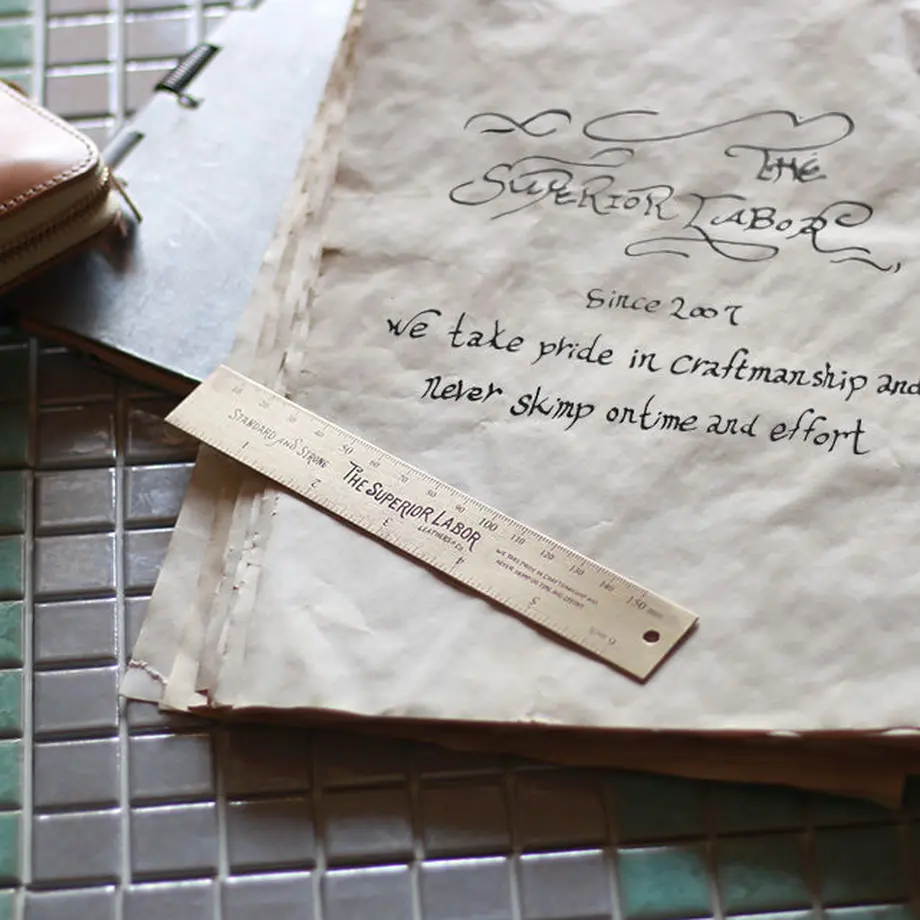 THE
SUPERIOR LABOR
Since 2007
We take pride in craftmanship and
never skimp ontime and effort
10 20 30 40 50 60 70 80 90 100 110 120 130 140 150 mm
STANDARD AND STRONG
THE SUPERIOR LABOR
LEATHERS & CO.
WE TAKE PRIDE IN CRAFTMANSHIP AND
NEVER SKIMP ON TIME AND EFFORT
1 2 3 4 5 6